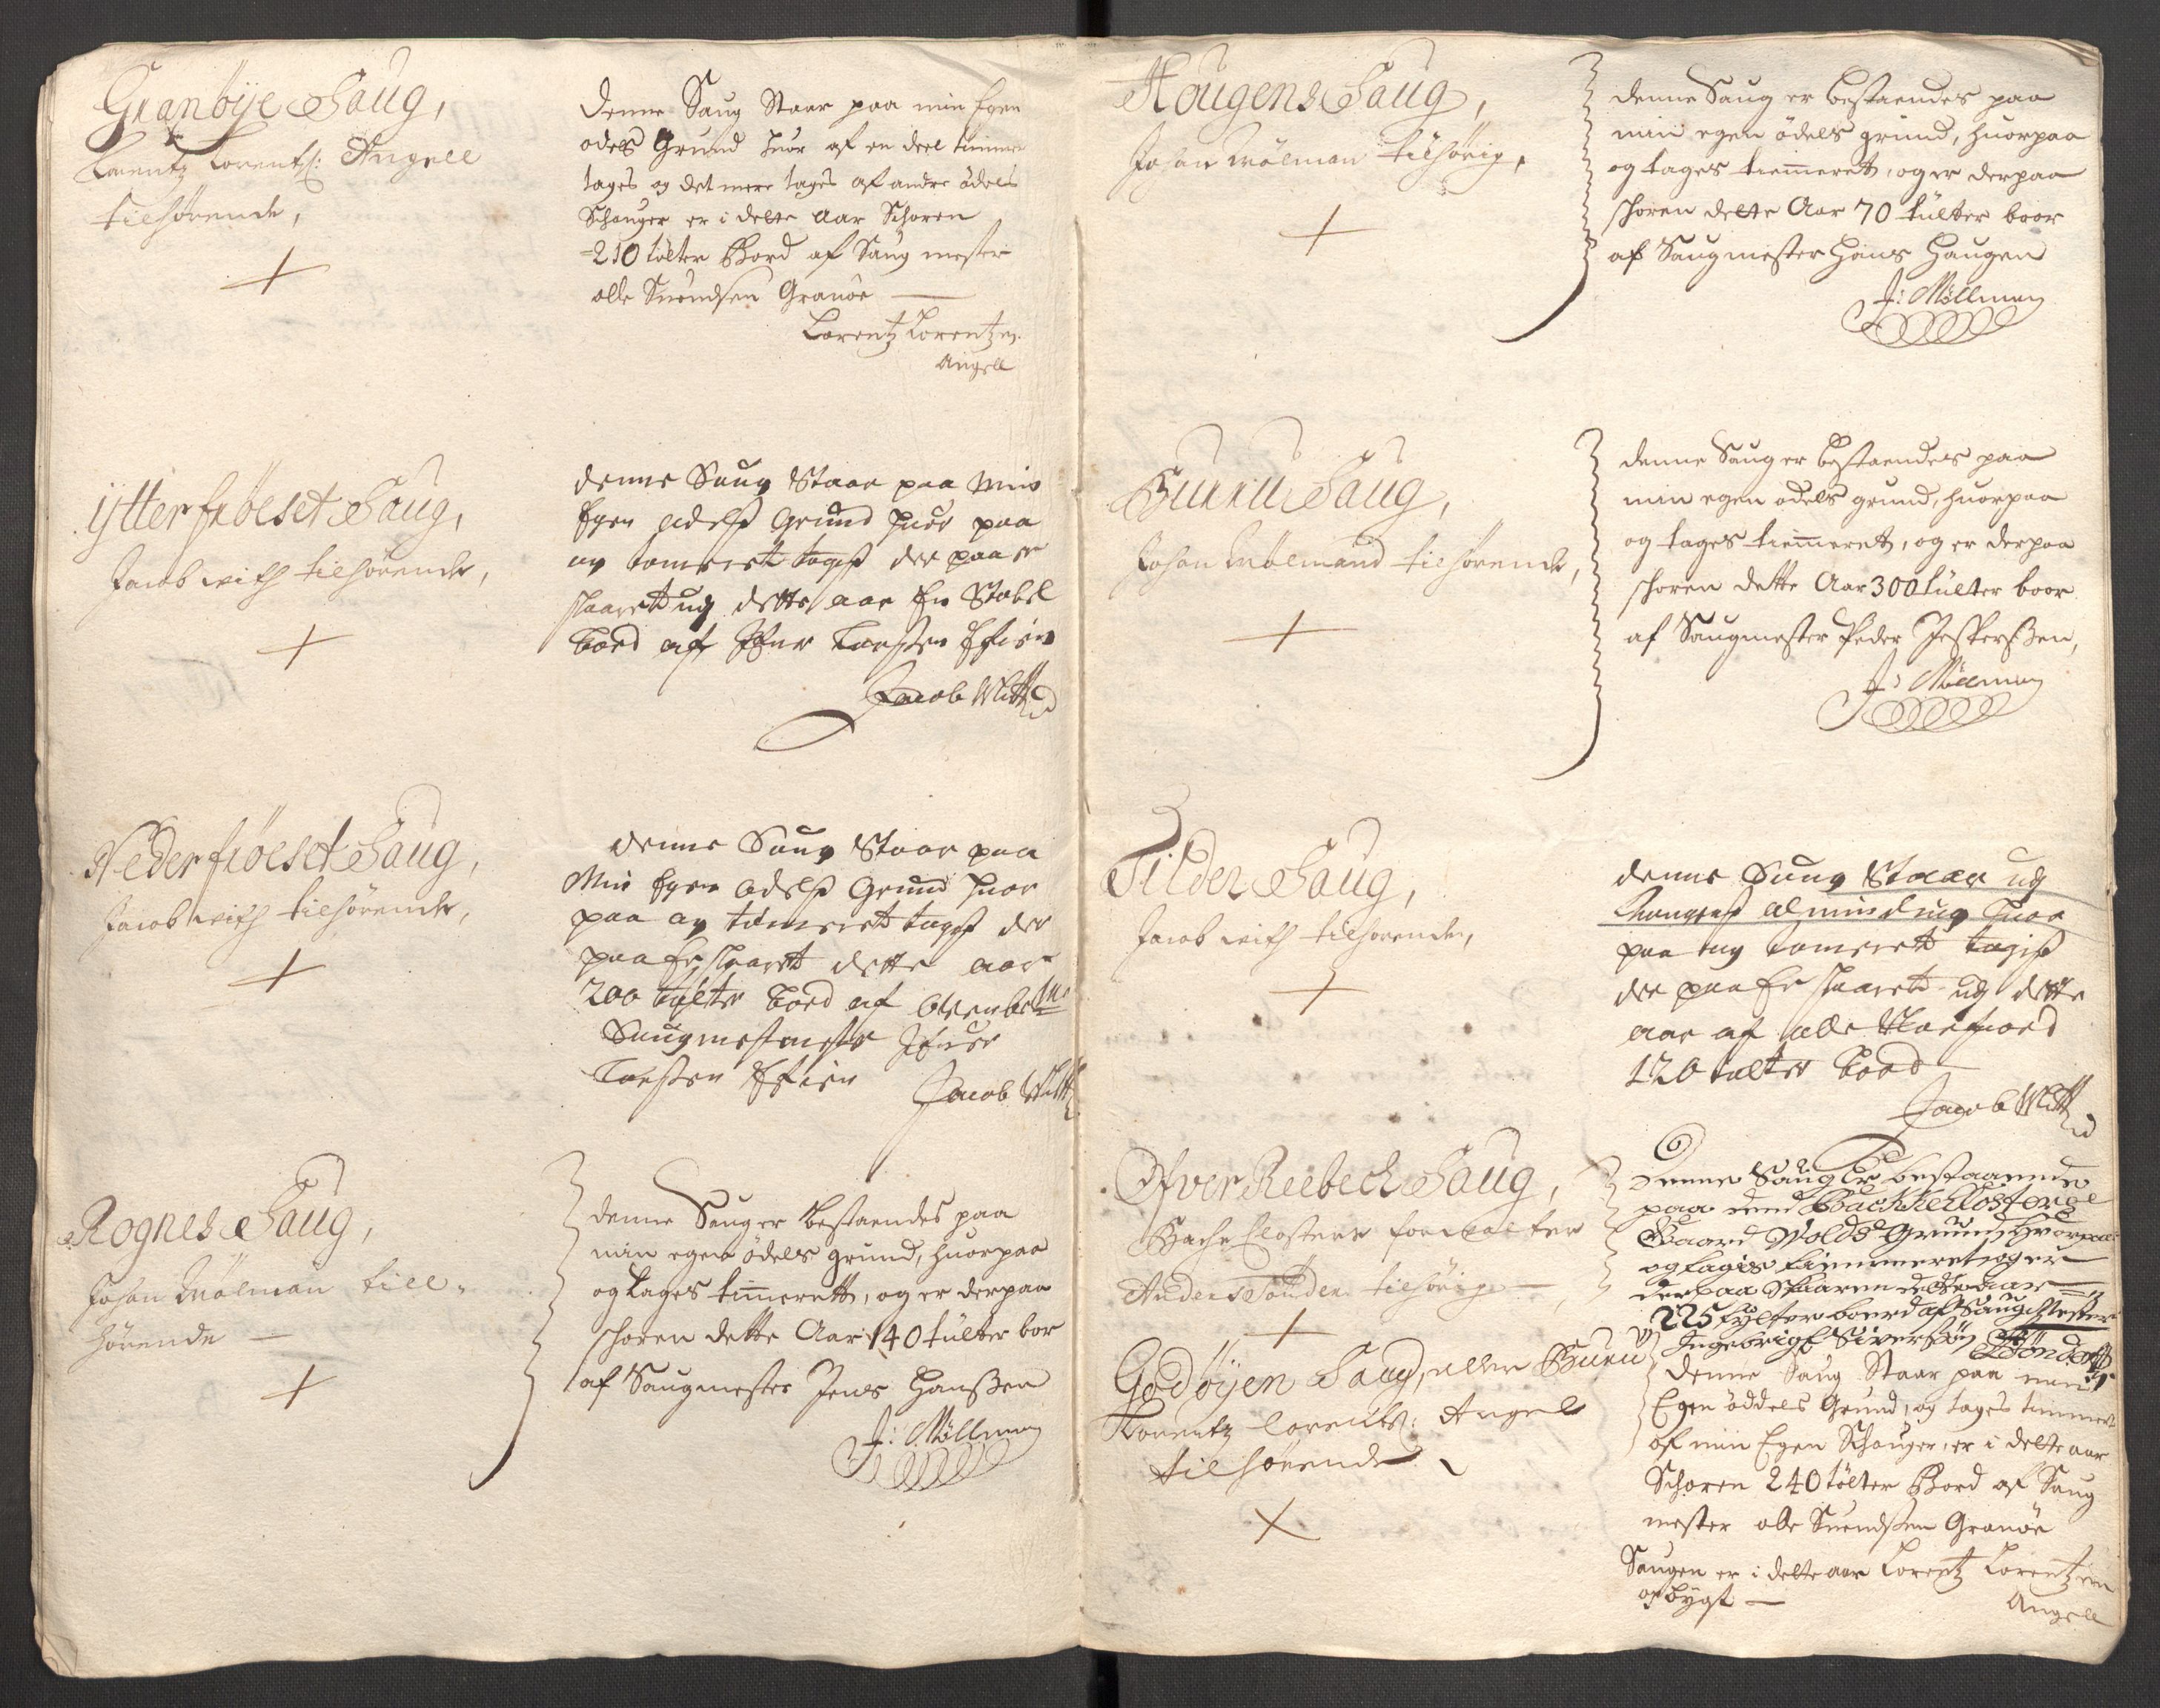 Granöye Saug,
Lorentz Lorents: Angell
tilhørende,
Denne Saug Staar paa min Egen
odels Grund huor af en deel timmer
tages og det mere tages af andre odels
Schouger er i dette Aar Schoren
210 tölter Bord af Saug mester
olle Suendsen Granöe
Lorentz Lorentzen
Angell
Ytter fröeset Saug,
Jacob with tilhørende,
denne Saug Staar paa min
Egen odelß Grund huor paa
og tomret tagß der paa er
skaaret ug dette aar En Stabel
bord af Ifuer Torßen
Jacob Witth
Neder fröeset Saug,
Jacob with tilhørende,
denne Saug Staar paa
Min Egen Odelß Grund huor
paa og tömeret tagß der
paa Er skaaret dette aar
200 tylter bord af
Saugmestmester Ifuer
Torßen
Jacob Witth
Rognes Saug,
Johan Mølman till-
hørende
denne Saug er bestaendes paa
min egen ödels grund, huorpaa
og tages timmerett, og er derpaa
skoren dette Aar 140 tülter bor
af Saugmester Jens Hanßen
J: Möllman
Hougens Saug,
Johan Mølman tilhørig,
denne Saug er bestaendes paa
min egen ödels grund, huorpaa
og tages timmeret, og er derpaa
skoren dette Aar 70 tülter boor
af Saugmester Hans Haugen
J: Möllman
Burru Saug,
Johan Mølmand tilhørende,
denne Saug er bestaendes paa
min egen odels grund, huorpaa
og tages timmeret, og er derpaa
skoren dette Aar 300 tülter boor
af Saugmester Peder Jesperßen,
J: Möllman
Tilder Saug,
Jacob with tilhørende,
denne Saug Staar ug
Kongenß alminding huor
paa ug tomerett tagiß
der paa Er skaaret ug dette
aar af olle
120 tülter bord
Jacob Witth
Ofver Reebech Saug,
Bache Closters forvalter
Anders Sønden tilhørige
Denne Saug Er bestaaende
paa dend Backe Closters
Gaard Wolds Grund hvorpaa
og tagis timmeret og er
derpaa skaaren dette aar
225 tylter boerd af Saug Mester
Ingebrigt Siversøn
Godöyen Saug, eller Buru
Lorentz Lorents: Angel
tilhörende
Denne Saug Staar paa min
Egen öddels Grund, og tages timmer
af min Egen Schouger, er i dette aar
Schoren 240 tölter Bord af Saug
mester olle Suendsen Granöe
Saugen er i dette aar Lorentz Lorentzen
opbygt Angell